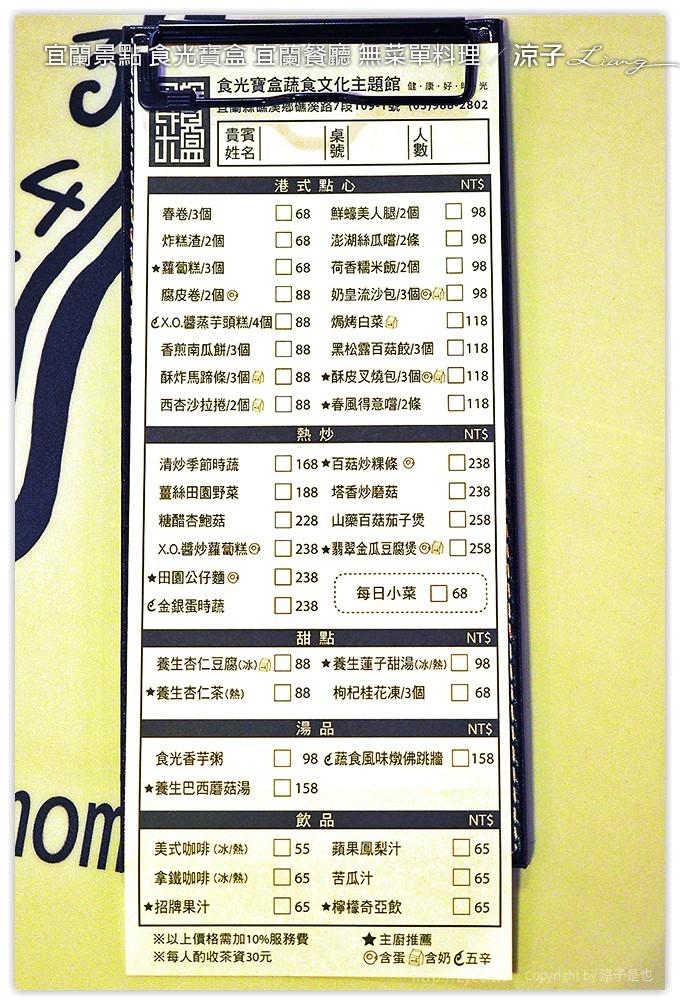 宜蘭景點 食光寶盒 宜蘭餐廳 無菜單料理 / 涼子 Liang
食光寶盒蔬食文化主題館 健·康·好·時·光
宜蘭縣礁溪鄉礁溪路7段109-1號 (03)988-2802
食光寶盒
貴賓姓名 桌號 人數
港式點心 NT$
春卷/3個 68 鮮蠔美人腿/2個 98
炸糕渣/2個 68 澎湖絲瓜嚐/2條 98
★蘿蔔糕/3個 68 荷香糯米飯/2個 98
腐皮卷/2個 88 奶皇流沙包/3個 98
X.O.醬蒸芋頭糕/4個 88 焗烤白菜 118
香煎南瓜餅/3個 88 黑松露百菇餃/3個 118
酥炸馬蹄條/3個 88 ★酥皮叉燒包/3個 118
西杏沙拉捲/2個 88 ★春風得意嚐/2條 118
熱炒 NT$
清炒季節時蔬 168 ★百菇炒粿條 238
薑絲田園野菜 188 塔香炒蘑菇 238
糖醋杏鮑菇 228 山藥百菇茄子煲 258
X.O.醬炒蘿蔔糕 238 ★翡翠金瓜豆腐煲 258
★田園公仔麵 238
每日小菜 68
金銀蛋時蔬 238
甜點 NT$
養生杏仁豆腐(冰) 88 ★養生蓮子甜湯(冰/熱) 98
★養生杏仁茶(熱) 88 枸杞桂花凍/3個 68
湯品 NT$
食光香芋粥 98 蔬食風味燉佛跳牆 158
★養生巴西蘑菇湯 158
飲品 NT$
美式咖啡(冰/熱) 55 蘋果鳳梨汁 65
拿鐵咖啡(冰/熱) 65 苦瓜汁 65
★招牌果汁 65 ★檸檬奇亞飲 65
※以上價格需加10%服務費 ★主廚推薦
※每人酌收茶資30元 含蛋 含奶 五辛
4
hom
Copyright by 涼子是也